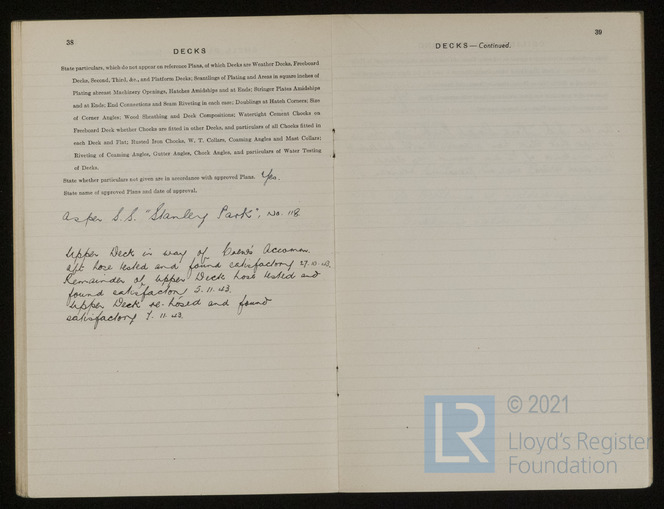 38
DECKS
State particulars, which do not appear on reference Plans, of which Decks are Weather Decks, Freeboard
Decks, Second, Third, &c., and Platform Decks; Scantlings of Plating and Areas in square inches of
Plating abreast Machinery Openings, Hatches Amidships and at Ends; Stringer Plates Amidships
and at Ends; End Connections and Seam Riveting in each case; Doublings at Hatch Corners; Size
of Corner Angles; Wood Sheathing and Deck Compositions; Watertight Cement Chocks on
Freeboard Deck whether Chocks are fitted in other Decks, and particulars of all Chocks fitted in
each Deck and Flat; Rusted Iron Chocks, W. T. Collars, Coaming Angles and Mast Collars;
Riveting of Coaming Angles, Gutter Angles, Chock Angles, and particulars of Water Testing
of Decks.
State whether particulars not given are in accordance with approved Plans. Yes.
State name of approved Plans and date of approval.
As per S.S. "Stanley Park". No. 118
Upper Deck in way of Crew's Accomm.
aft hose tested and found satisfactory 27.10.43.
Remainder of Upper Deck hose tested and
found satisfactory 5.11.43.
Upper Deck re-hosed and found
satisfactory 7.11.43.
39
DECKS—Continued.
LR
© 2021
Lloyd's Register
Foundation